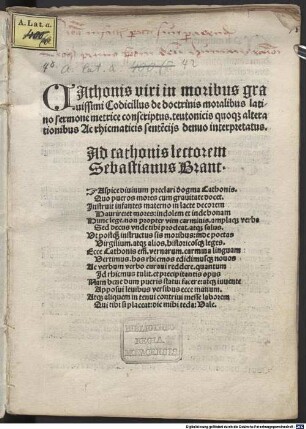 A. Lat. a.
4° A. Lat. a. 42
CAthonis viri in moribus gra
uissimi Codicillus de doctrinis moralibus lati
no sermone metrice conscriptus. teutonicis quoq; altera
tionibus Ac rhicmaticis sentēcijs denuo interpretatus.
Ad cathonis lectorem
Sebastianus Brant.
Aspice diuinum preclari dogma Cathonis.
Quo pueros mores cum grauitate docet.
Instruit infantes materno in lacte decorem
Haurire et mores: indolem et inde bonam
Hunc lege. non propter vim carminis. amplaq; verba
Sed decus vnde tibi prodeat. atq; salus.
Ut postq; instructus sis moribus: inde poetas
Virgilium. atq; alios, historicosq; leges.
Ecce Cathonis em̄. vernarum. carmina linguam
Vertimus. hos rhicmos edidimusq; nouos
Ac verbum verbo curaui reddere. quantum
Id rhicmus tulit. et precipitantis opus
Nam bene dum pueris statui facere atq; iuuente
Apposui leuibus versibus ecce metrum.
Atq; aliquem in tenui contriui mense laborem
Qui tibi si placeat: dic mihi teda: Vale.
BIBLIOTHECA
REGIA
MONACENSIS